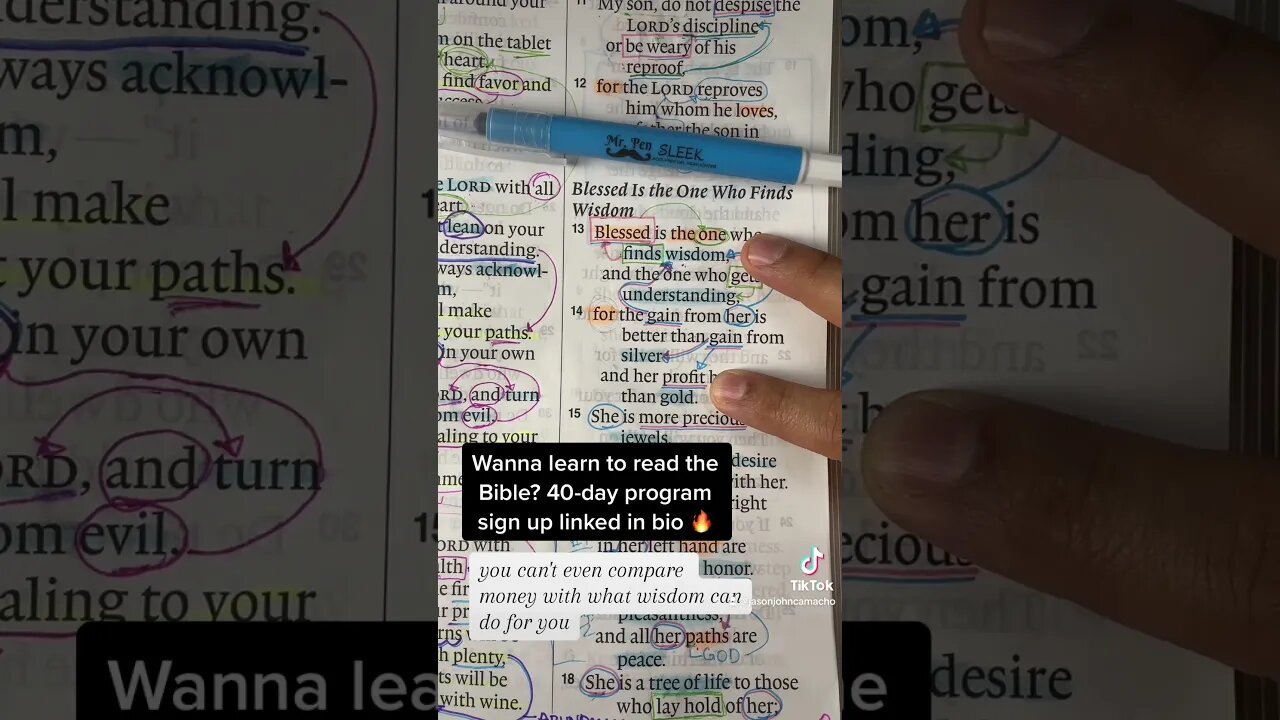 standing.
ways acknowl-
m,
l make
your paths.
in your own
ORD, and turn
om evil.
aling to your
Wanna lea
around your
m on the tablet
heart.
find favor and
success
e LORD with all
eart,
lean on your
derstanding.
ways acknowl-
m,
l make
your paths.
in your own
ORD, and turn
om evil.
aling to your
ORD with
alth
e fir
r pr
rns
h plenty,
ts will be
with wine.
11 My son, do not despise the
LORD's discipline
or be weary of his
reproof,
12 for the LORD reproves
him whom he loves,
father the son in
Mr. Pen SLEEK
Blessed Is the One Who Finds
Wisdom
13 Blessed is the one who
finds wisdom,
and the one who gets
understanding,
14 for the gain from her is
better than gain from
silver
and her profit b
than gold.
15 She is more precious
jewels,
desire
with her.
right
in her left hand are
honor.
pleasantness,
and all her paths are
peace.
GOD
18 She is a tree of life to those
who lay hold of her;
Wanna learn to read the
Bible? 40-day program
sign up linked in bio 🔥
you can't even compare
money with what wisdom can
do for you
TikTok
@jasonjohncamacho
om,
who gets
ding,
om her is
gain from
ecious
desire
e